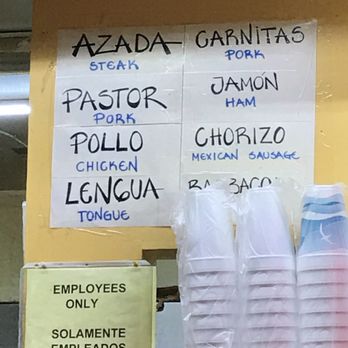 AZADA
STEAK
CARNITAS
PORK
PASTOR
PORK
JAMÓN
HAM
POLLO
CHICKEN
CHORIZO
MEXICAN SAUSAGE
LENGUA
TONGUE
EMPLOYEES
ONLY
SOLAMENTE
EMPLEADOS